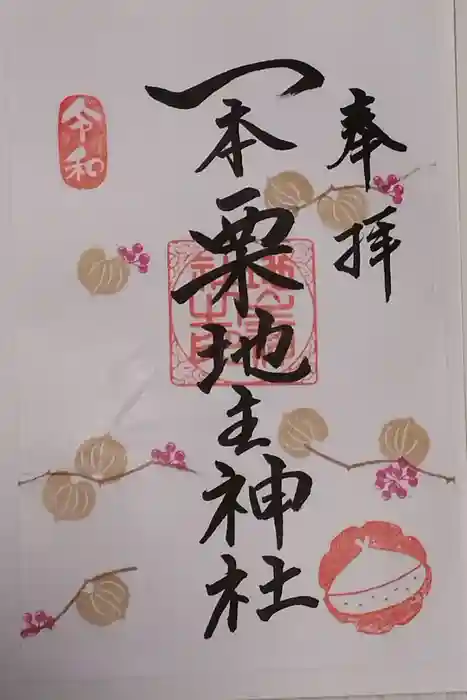 奉拝
一本栗地主神社
令和